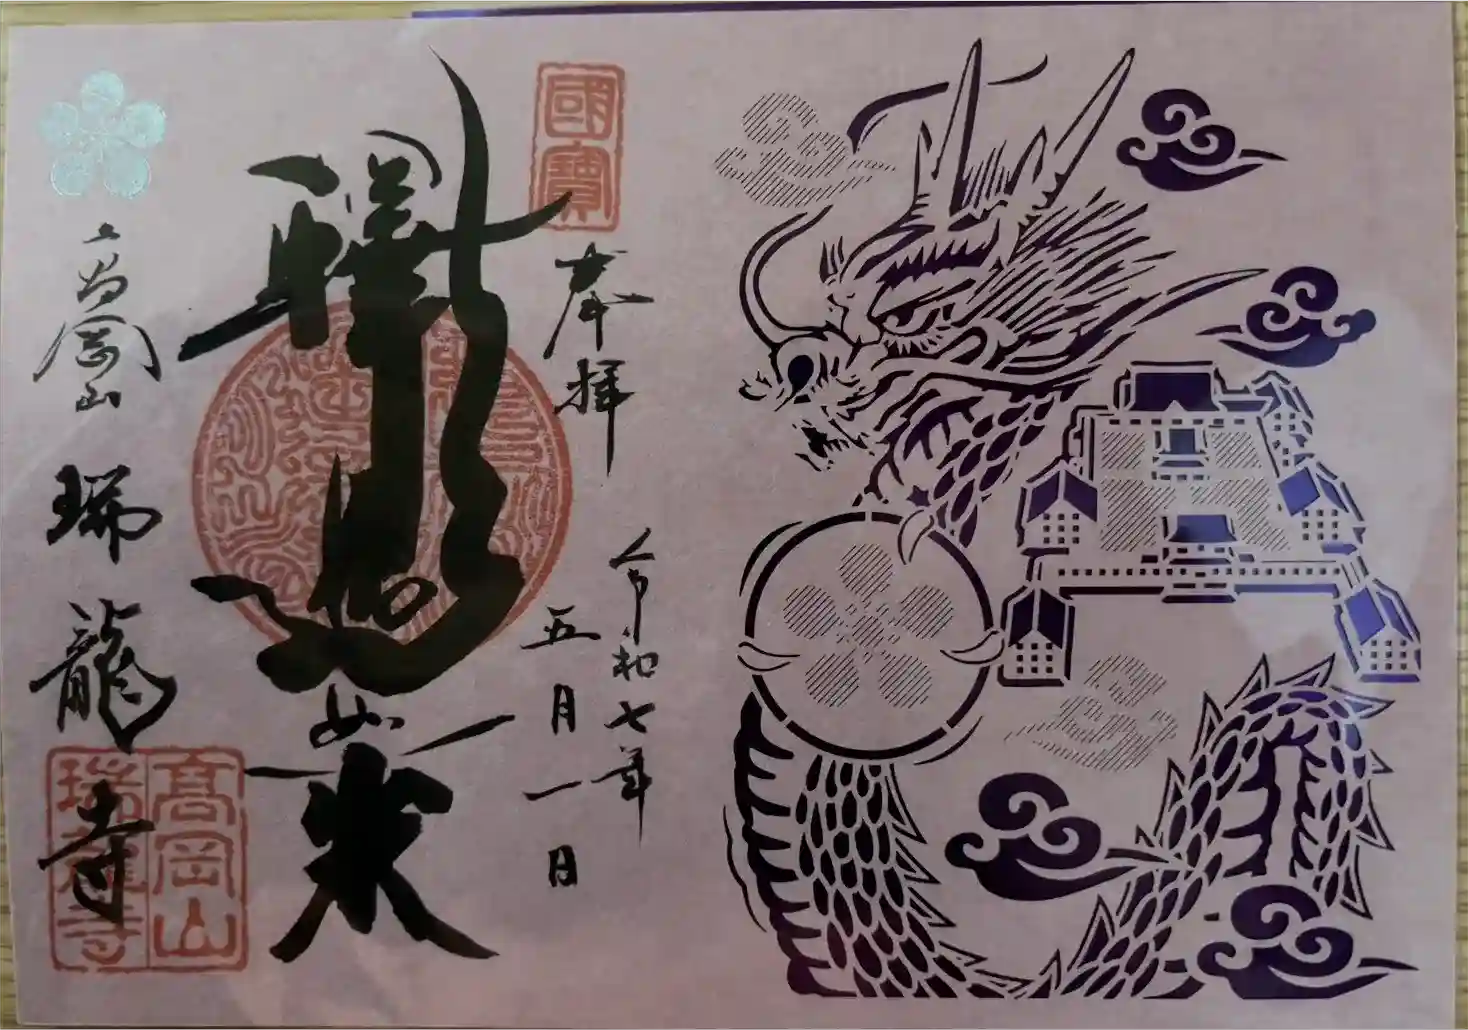 國寶
奉拝
令和七年
五月一日
釈迦如来
高岡山
瑞龍寺
高岡山
瑞龍寺